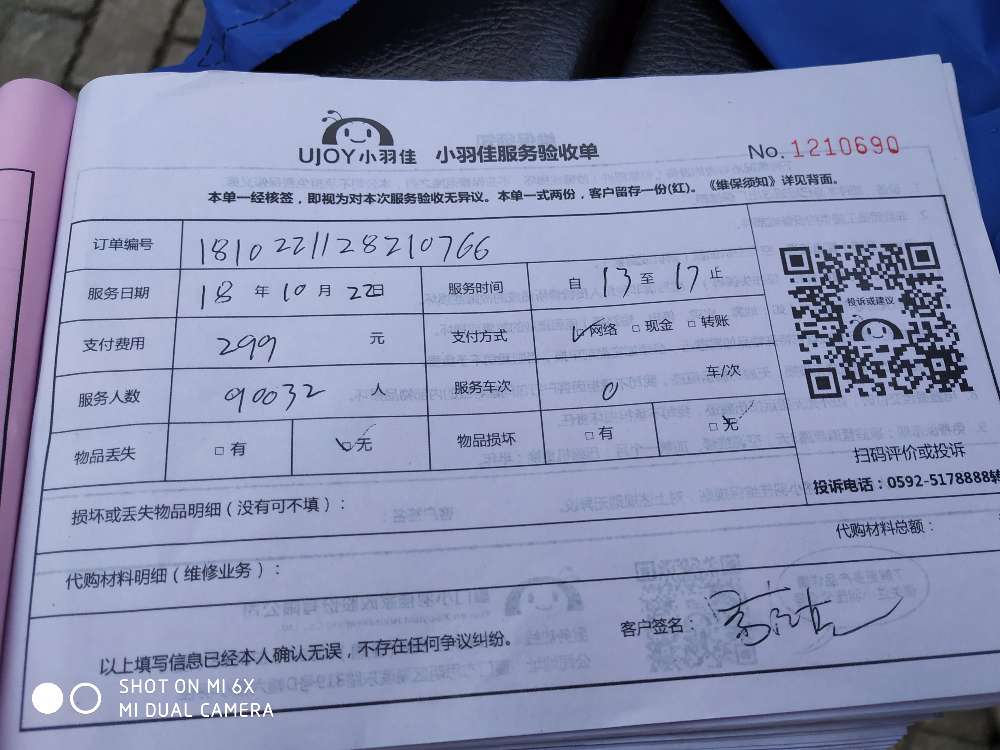 UJOY小羽佳 小羽佳服务验收单
No. 1210690
本单一经核签，即视为对本次服务验收无异议。本单一式两份，客户留存一份(红)。《维保须知》详见背面。
订单编号 1810221128210766
服务日期 18 年 10 月 22日 服务时间 自 13 至 17 止
支付费用 299 元 支付方式 □网络 □ 现金 □ 转账
服务人数 90032 人 服务车次 0 车/次
物品丢失 □ 有 □无 物品损坏 □ 有 □无
投诉或建议
扫码评价或投诉
投诉电话：0592-5178888转
损坏或丢失物品明细（没有可不填）：
代购材料明细（维修业务）：
代购材料总额：
客户签名：
以上填写信息已经本人确认无误，不存在任何争议纠纷。
SHOT ON MI 6X
MI DUAL CAMERA